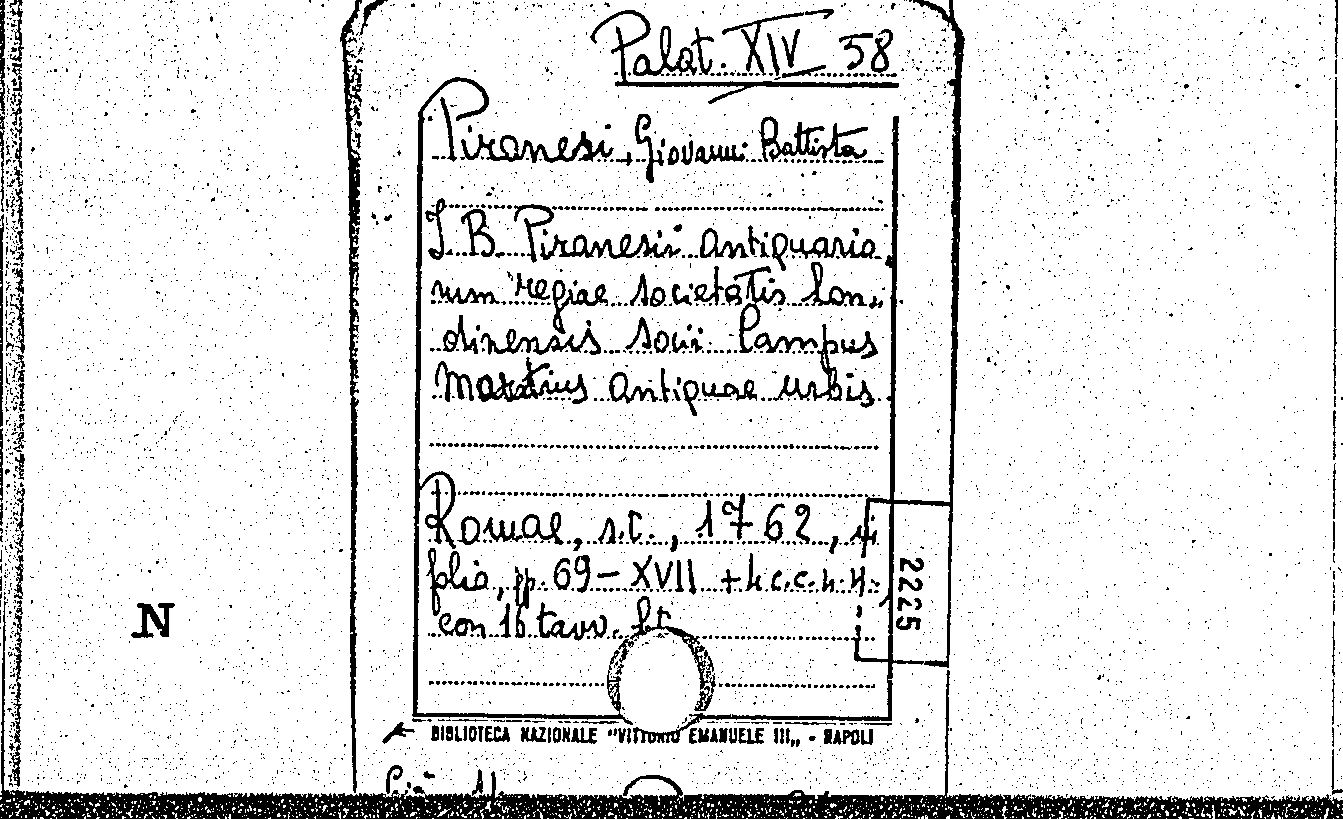 Palat. XIV 58
Piranesi, Giovanni Battista
J. B. Piranesii antiquaria
rum regiae societatis Lon-
dinensis socii Campus
Martius antiquae urbis.
Romae, s.t., 1762, in
folio, pp. 69-XVII + 4 c.c.n.n.
con 16 tavv. f.t.
2225
N
BIBLIOTECA NAZIONALE "VITTORIO EMANUELE III" - NAPOLI